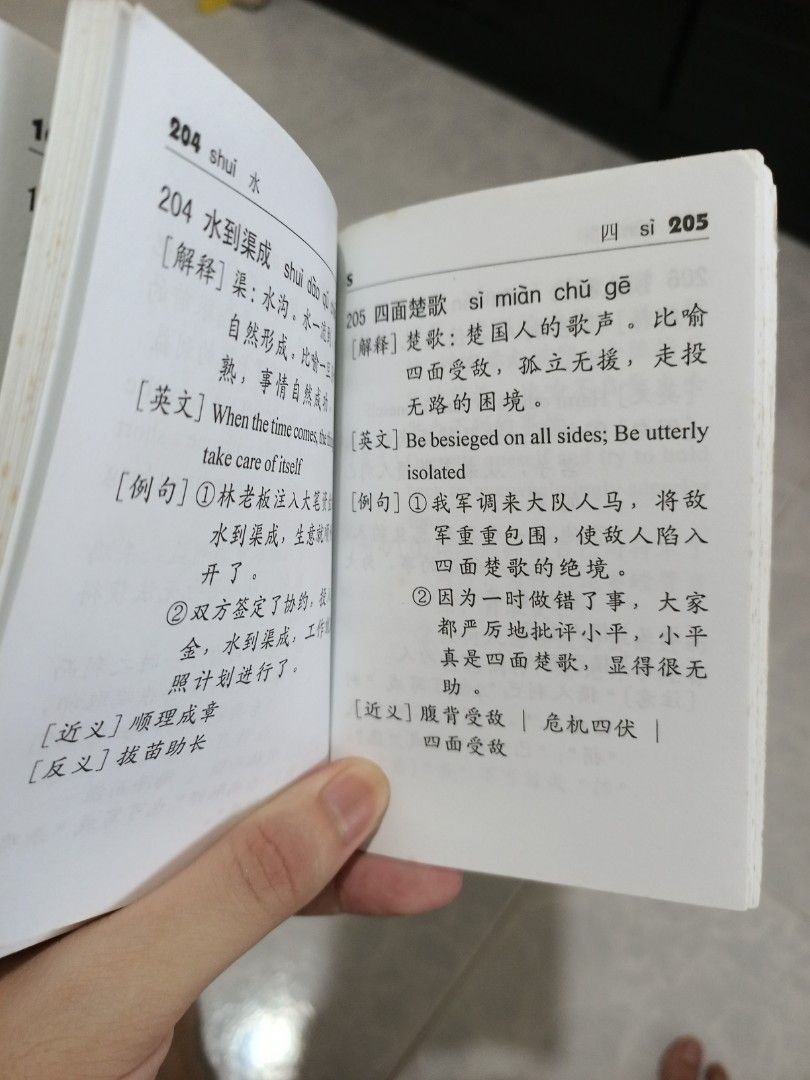 204 shuǐ 水
204 水到渠成 shuǐ dào qú
[解释] 渠：水沟。水一流到
自然形成。比喻一旦
熟，事情自然成功
[英文] When the time comes, the
take care of itself
[例句] ①林老板注入大笔资金
水到渠成，生意就
开了。
②双方签定了协约，
金，水到渠成，工作
照计划进行了。
[近义] 顺理成章
[反义] 拔苗助长
四 sì 205
S
205 四面楚歌 sì miàn chǔ gē
[解释] 楚歌：楚国人的歌声。比喻
四面受敌，孤立无援，走投
无路的困境。
[英文] Be besieged on all sides; Be utterly
isolated
[例句] ①我军调来大队人马，将敌
军重重包围，使敌人陷入
四面楚歌的绝境。
②因为一时做错了事，大家
都严厉地批评小平，小平
真是四面楚歌，显得很无
助。
[近义] 腹背受敌 | 危机四伏 |
四面受敌